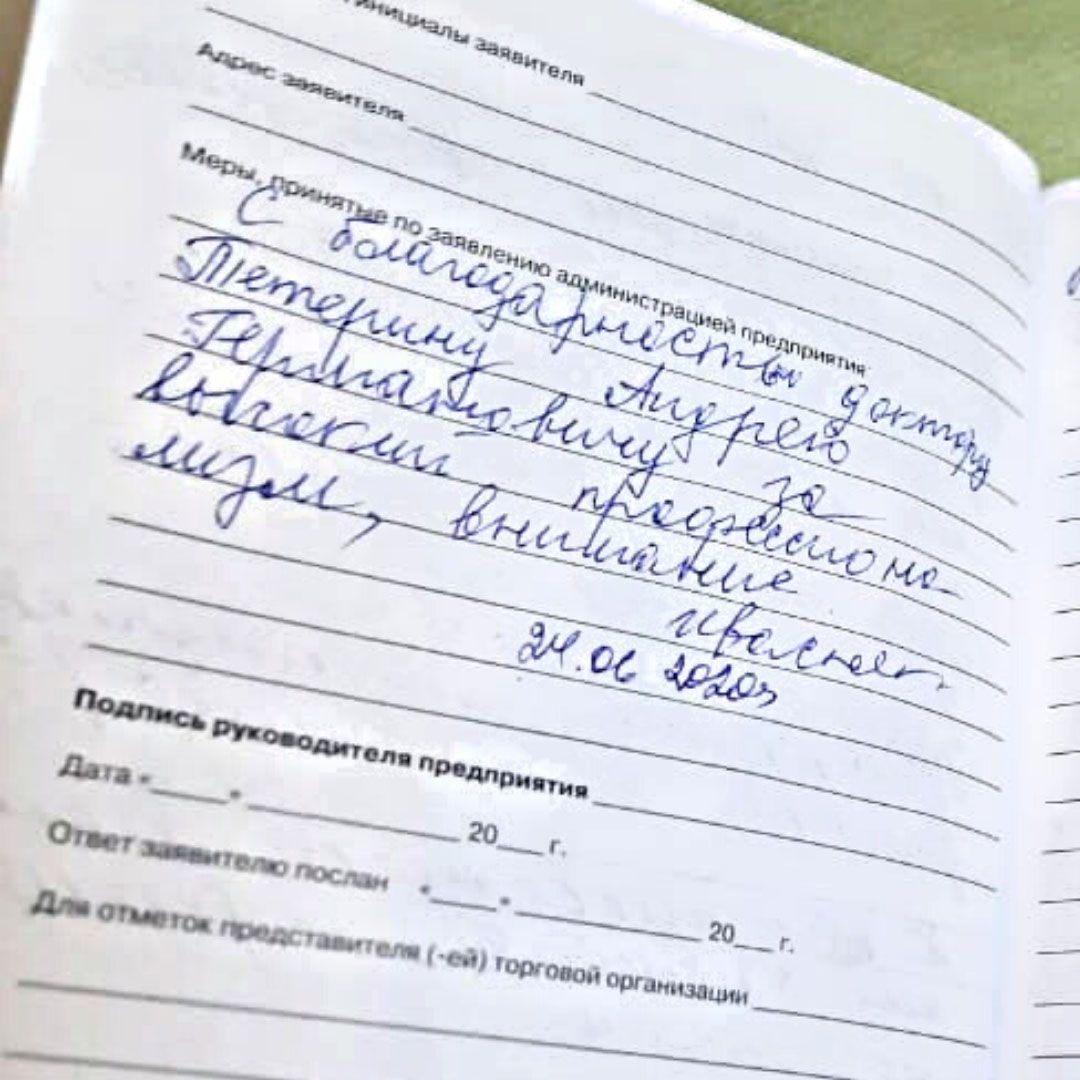 инициалы заявителя
Адрес заявителя
Меры, принятые по заявлению администрацией предприятия:
С благодарностью доктору
Тетерину Андрею
Германовичу за
высокий профессиона-
лизм, внимание
24.06 2020г
Подпись руководителя предприятия
Дата "____" ____________ 20___ г.
Ответ заявителю послан "____" ____________ 20___ г.
Для отметок представителя (-ей) торговой организации